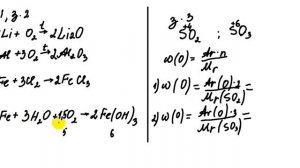 1, з. 2
Li + O₂ →ᵗ 2Li₂O
Al + 3O₂ →ᵗ 2Al₂O₃
Fe + 3Cl₂ → 2FeCl₃
Fe + 3H₂O + 1,5O₂ → 2Fe(OH)₃
5 6
з. 3
+4 +6
SO₂ ; SO₃
w(O) = Ar·n / Mr
1) w(O) = Ar(O)·2 / Mr(SO₂)
2) w(O) = Ar(O)·3 / Mr(SO₃)